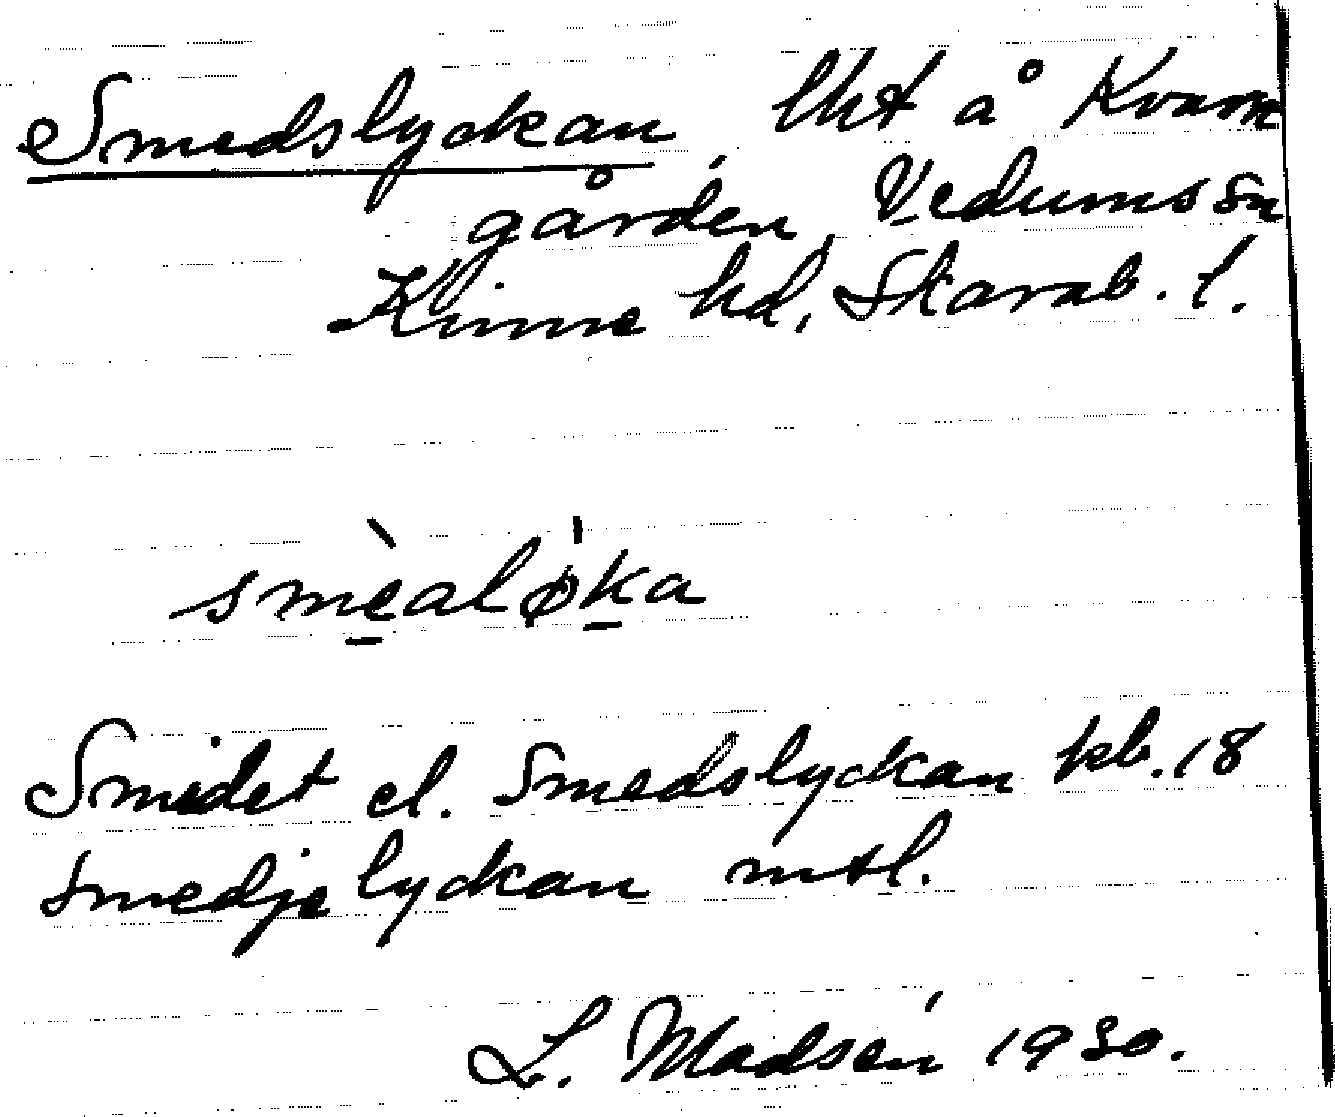 Smedslyckan, lht å Kvarn
gården, Vedums sn
Kinne hd, Skarab. l.
smèaløka
Smidet el. Smedslyckan kb. 18
Smedjelyckan mtl.
L. Madsén 1930.